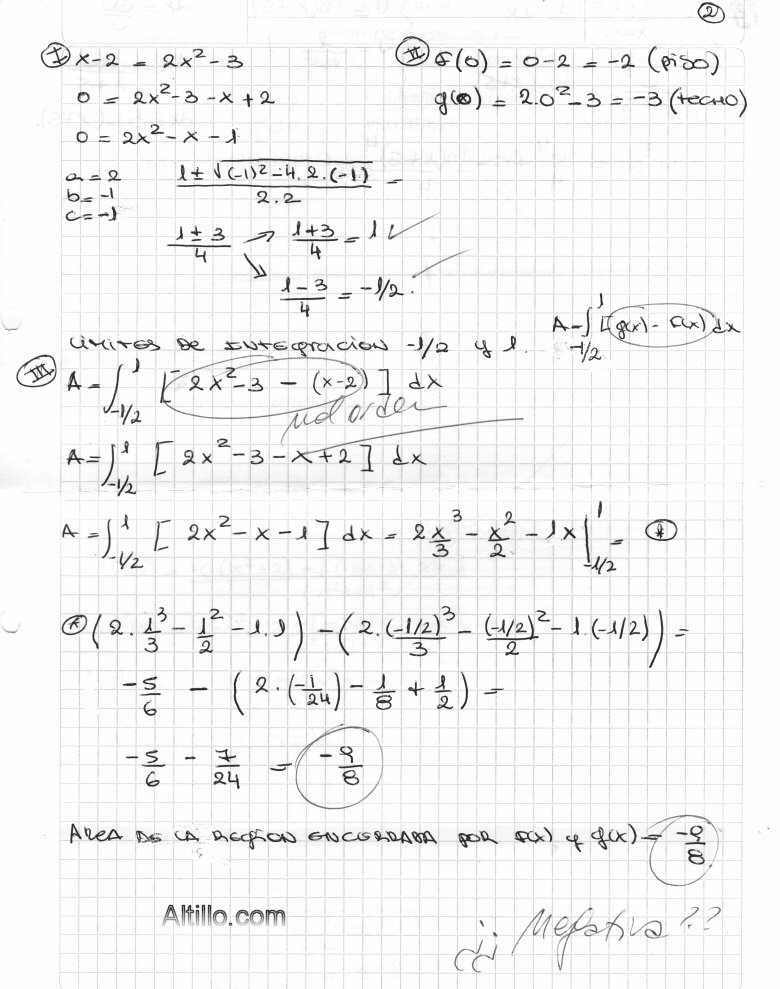 2
I x-2 = 2x²-3
0 = 2x²-3-x+2
0 = 2x²-x-1
a=2
b=-1
c=-1
1±√(-1)²-4.2.(-1) / 2.2 =
1±3 / 4 → 1+3 / 4 = 1 ✓
1-3 / 4 = -1/2.
II f(0) = 0-2 = -2 (piso)
g(0) = 2.0²-3 = -3 (techo)
LIMITES DE INTEGRACION -1/2 y 1.
A=∫_{-1/2}^{1} [g(x) - f(x)] dx
III A=∫_{-1/2}^{1} [2x²-3 - (x-2)] dx
mal orden
A=∫_{-1/2}^{1} [2x²-3-x+2] dx
A=∫_{-1/2}^{1} [2x²-x-1] dx = 2x³/3 - x²/2 - 1x |_{-1/2}^{1} = *
* (2.1³/3 - 1²/2 - 1.1) - (2.(-1/2)³/3 - (-1/2)²/2 - 1.(-1/2)) =
-5/6 - (2.(-1/24) - 1/8 + 1/2) =
-5/6 - 7/24 = -9/8
AREA DE LA REGION ENCERRADA POR f(x) y g(x) = -9/8
Altillo.com
¿¿ Negativa ??